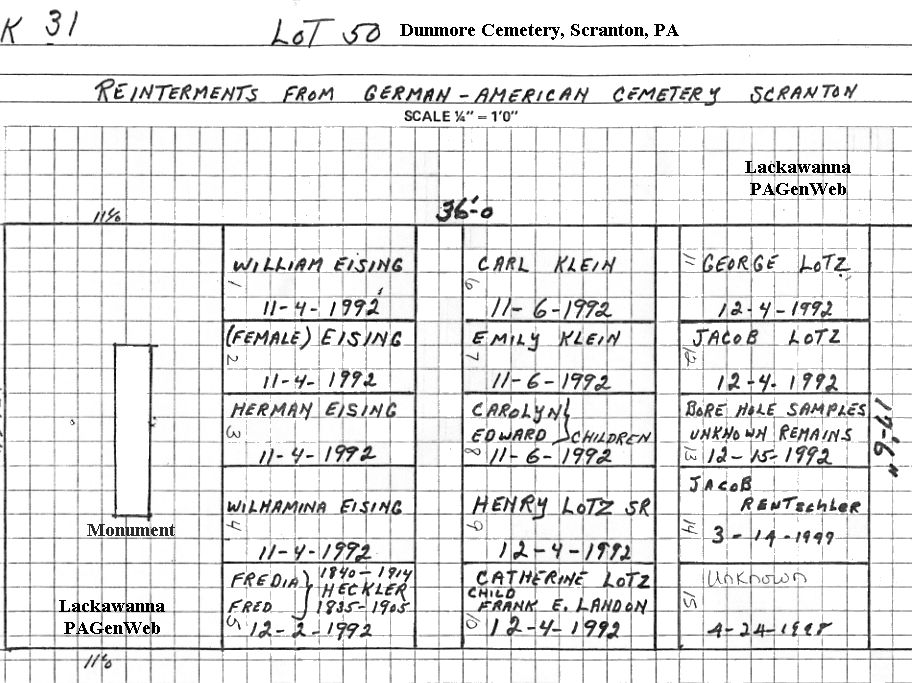 K 31 LOT 50 Dunmore Cemetery, Scranton, PA
REINTERMENTS FROM GERMAN-AMERICAN CEMETERY SCRANTON
SCALE ¼" = 1'0"
Lackawanna
PAGenWeb
36'-0
WILLIAM EISING
1
11-4-1992
(FEMALE) EISING
2
11-4-1992
HERMAN EISING
3
11-4-1992
WILHAMINA EISING
4
11-4-1992
FREDIA } 1840-1914
HECKLER
FRED 1835-1905
5
12-2-1992
CARL KLEIN
6
11-6-1992
EMILY KLEIN
7
11-6-1992
CAROLYN }
EDWARD CHILDREN
8
11-6-1992
HENRY LOTZ SR
9
12-4-1992
CATHERINE LOTZ
CHILD
FRANK E. LANDON
10
12-4-1992
11 GEORGE LOTZ
12-4-1992
JACOB LOTZ
12
12-4-1992
BORE HOLE SAMPLES
UNKNOWN REMAINS
13 12-15-1992
JACOB
RENTSchler
14
3-14-1997
Unknown
15
4-24-1998
17'-6"
Monument
Lackawanna
PAGenWeb